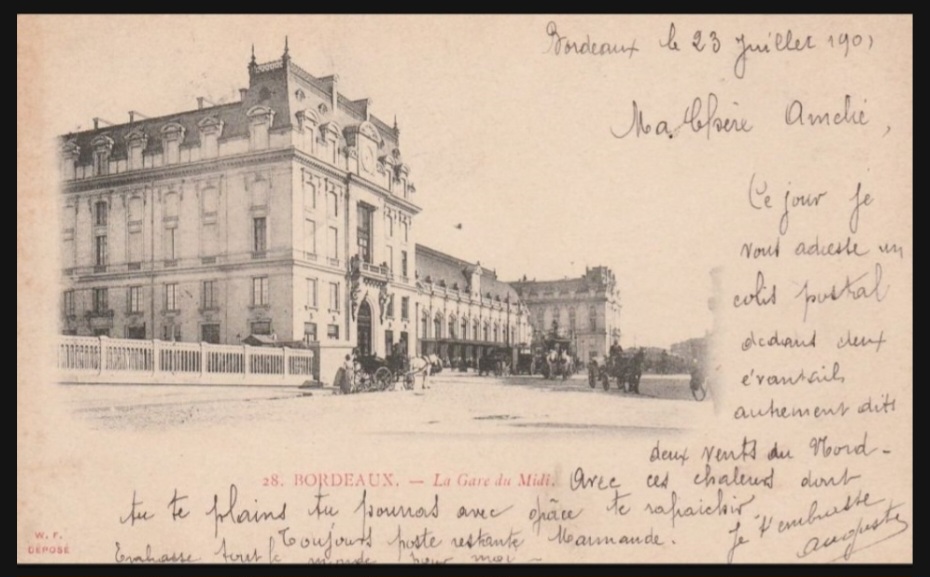 Bordeaux le 23 Juillet 1901
Ma Chère Amelie,
Ce jour je
vous adresse un
colis postal
dedans deux
évantails
autrement dits
deux vents du Nord -
28. BORDEAUX. — La Gare du Midi.
Avec ces chaleurs dont
tu te plains tu pourras avec grâce te rafraichir
Toujours poste restante Marmande.
Je t'embrasse
auguste
W. F.
DÉPOSÉ
Embrasse tout le monde pour moi -